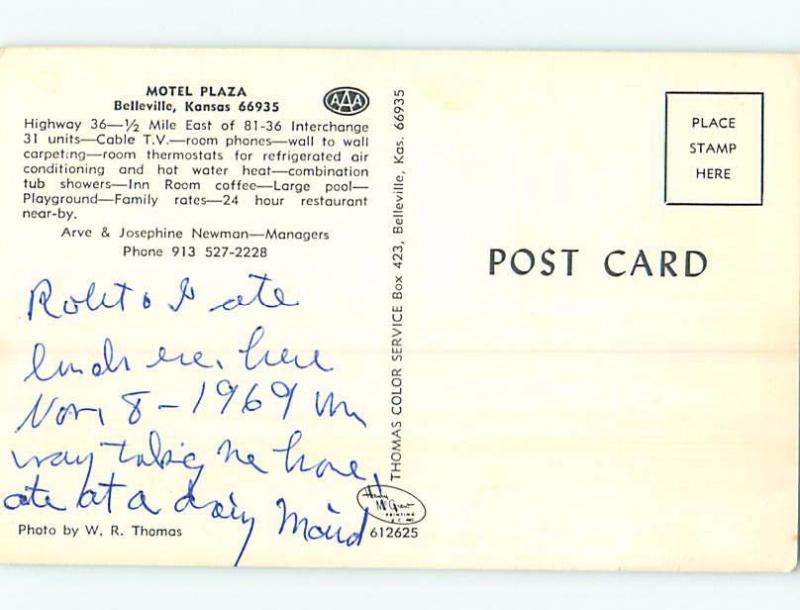 MOTEL PLAZA
Belleville, Kansas 66935
AAA
Highway 36—½ Mile East of 81-36 Interchange
31 units—Cable T.V.—room phones—wall to wall
carpeting—room thermostats for refrigerated air
conditioning and hot water heat—combination
tub showers—Inn Room coffee—Large pool—
Playground—Family rates—24 hour restaurant
near-by.
Arve & Josephine Newman—Managers
Phone 913 527-2228
ate
here
Nov, 8-1969
way taking me home,
ate at a dairy Maid
Photo by W. R. Thomas
THOMAS COLOR SERVICE Box 423, Belleville, Kas. 66935
McGrew
PRINTING
612625
PLACE
STAMP
HERE
POST CARD